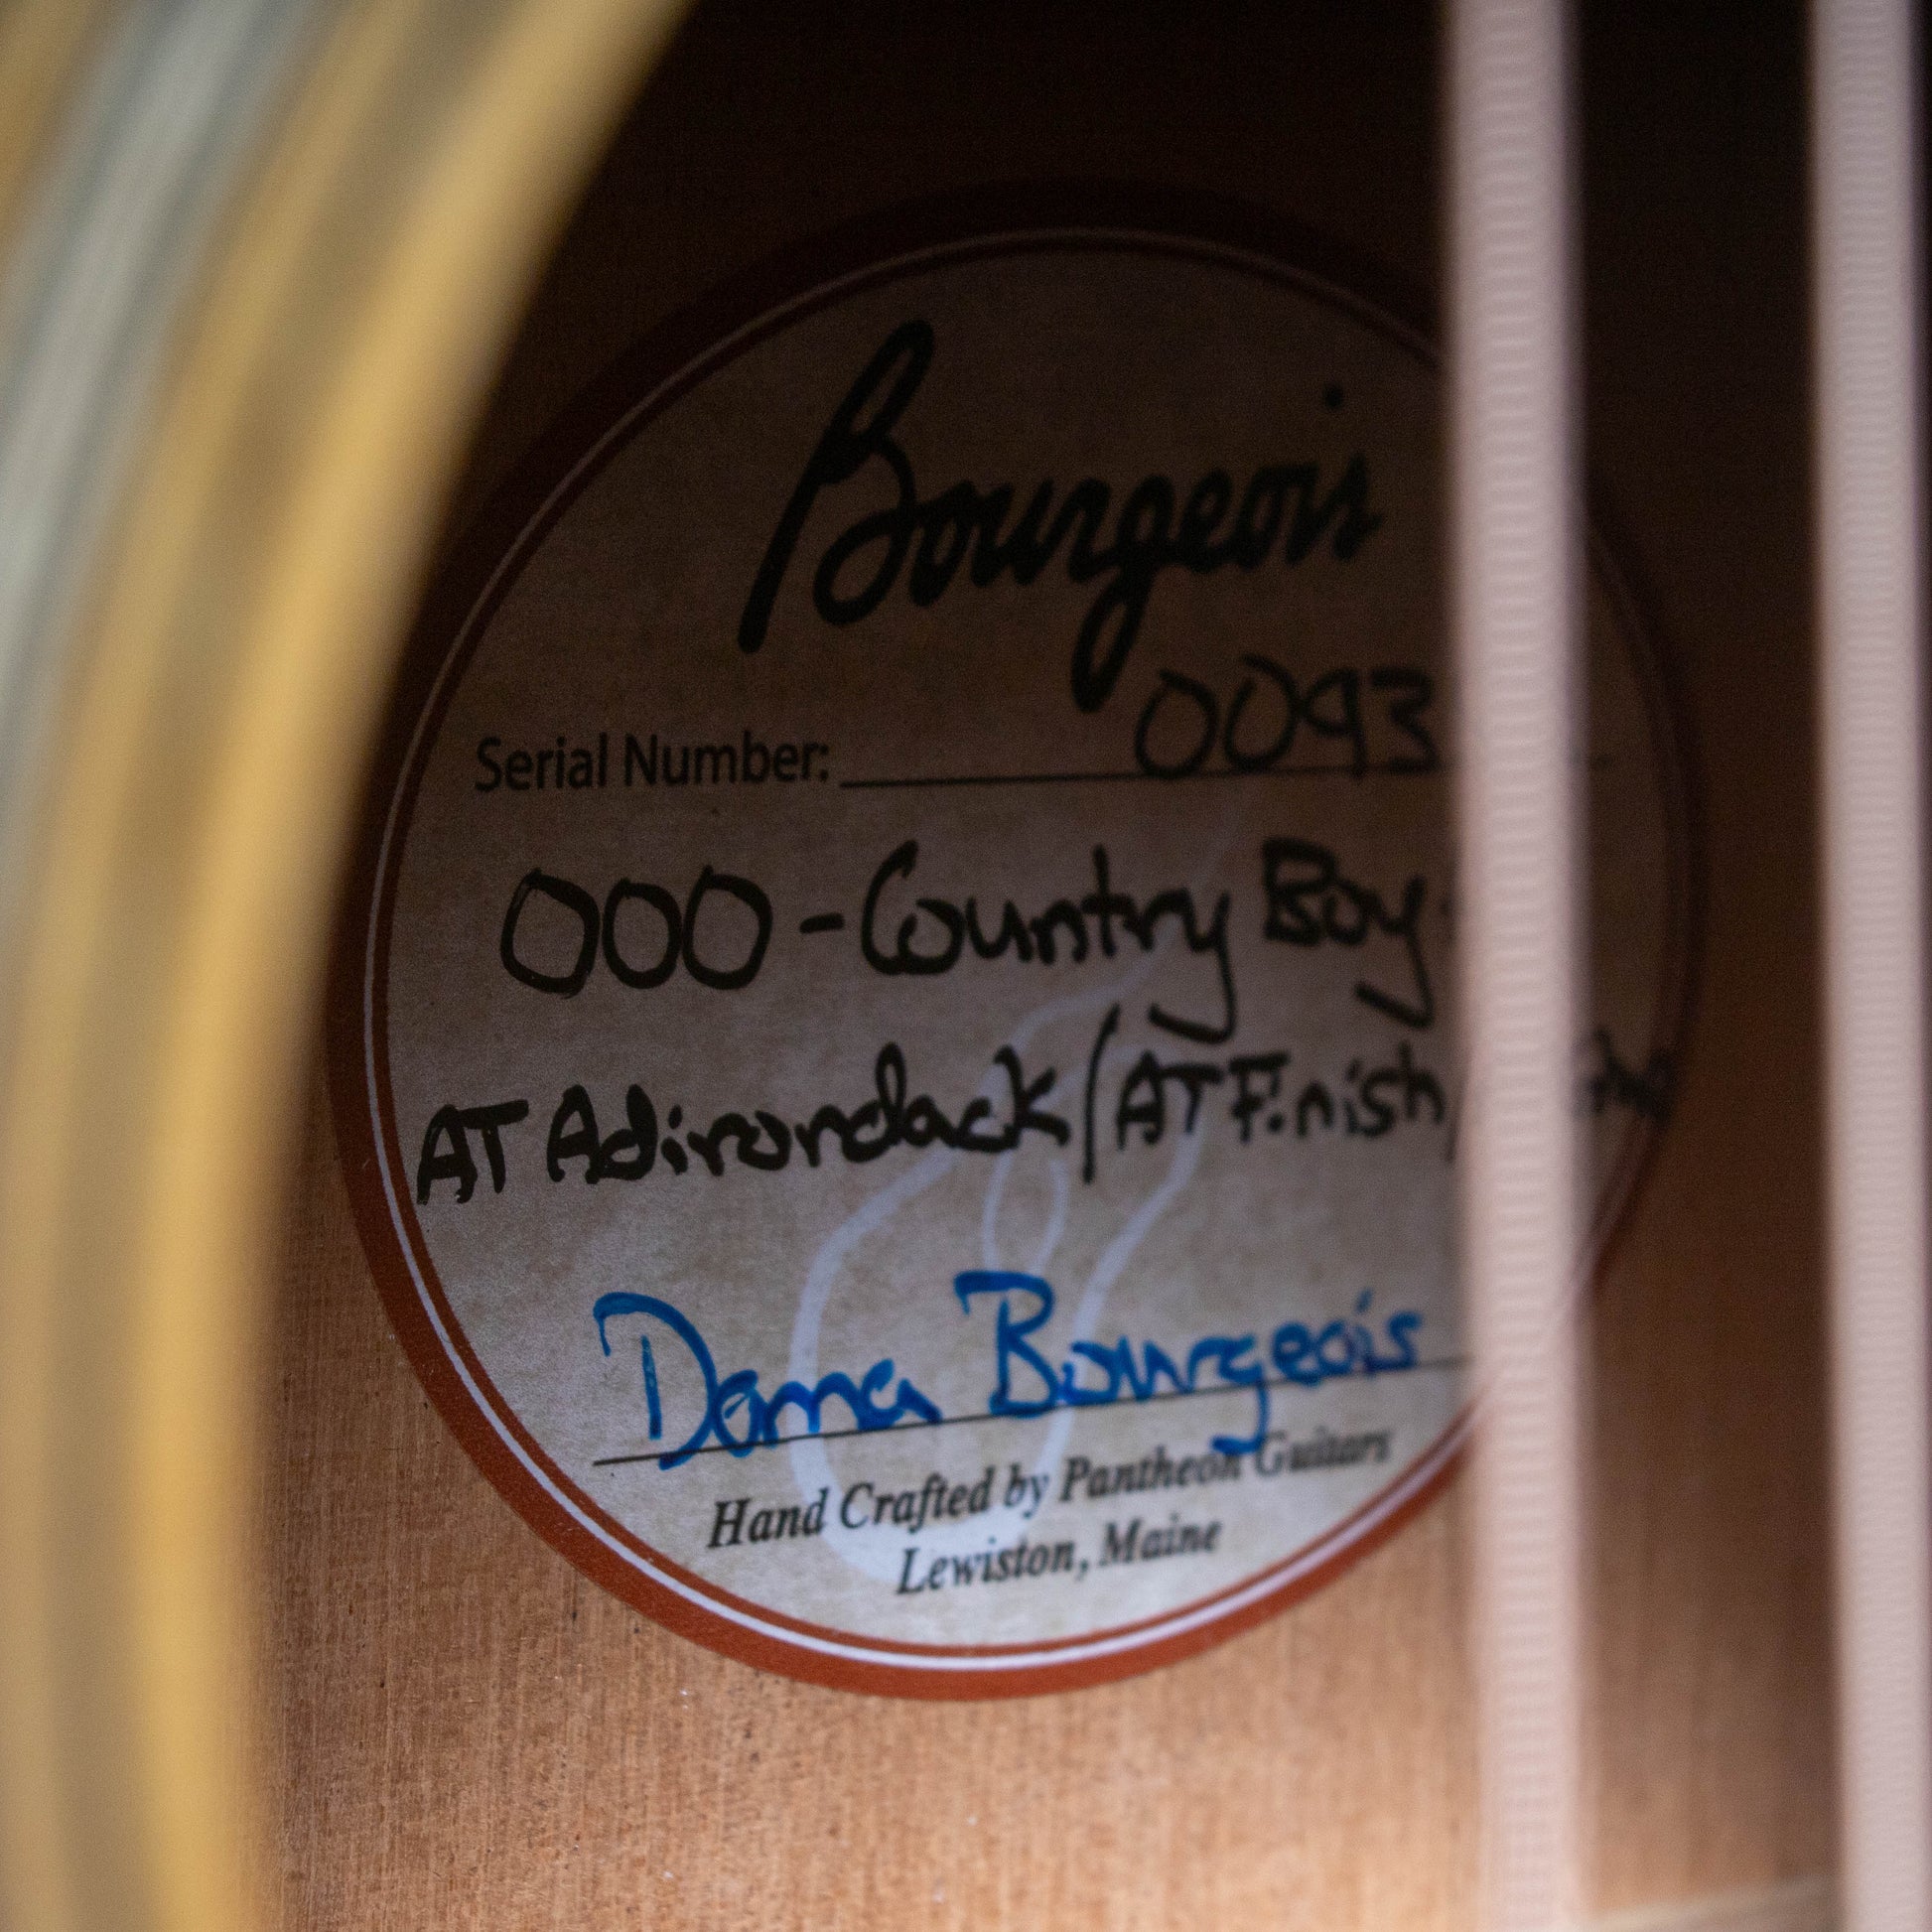 Bourgeois
Serial Number: 0093
000-Country Boy
AT Adirondack/AT Finish/
Dana Bourgeois
Hand Crafted by Pantheon Guitars
Lewiston, Maine